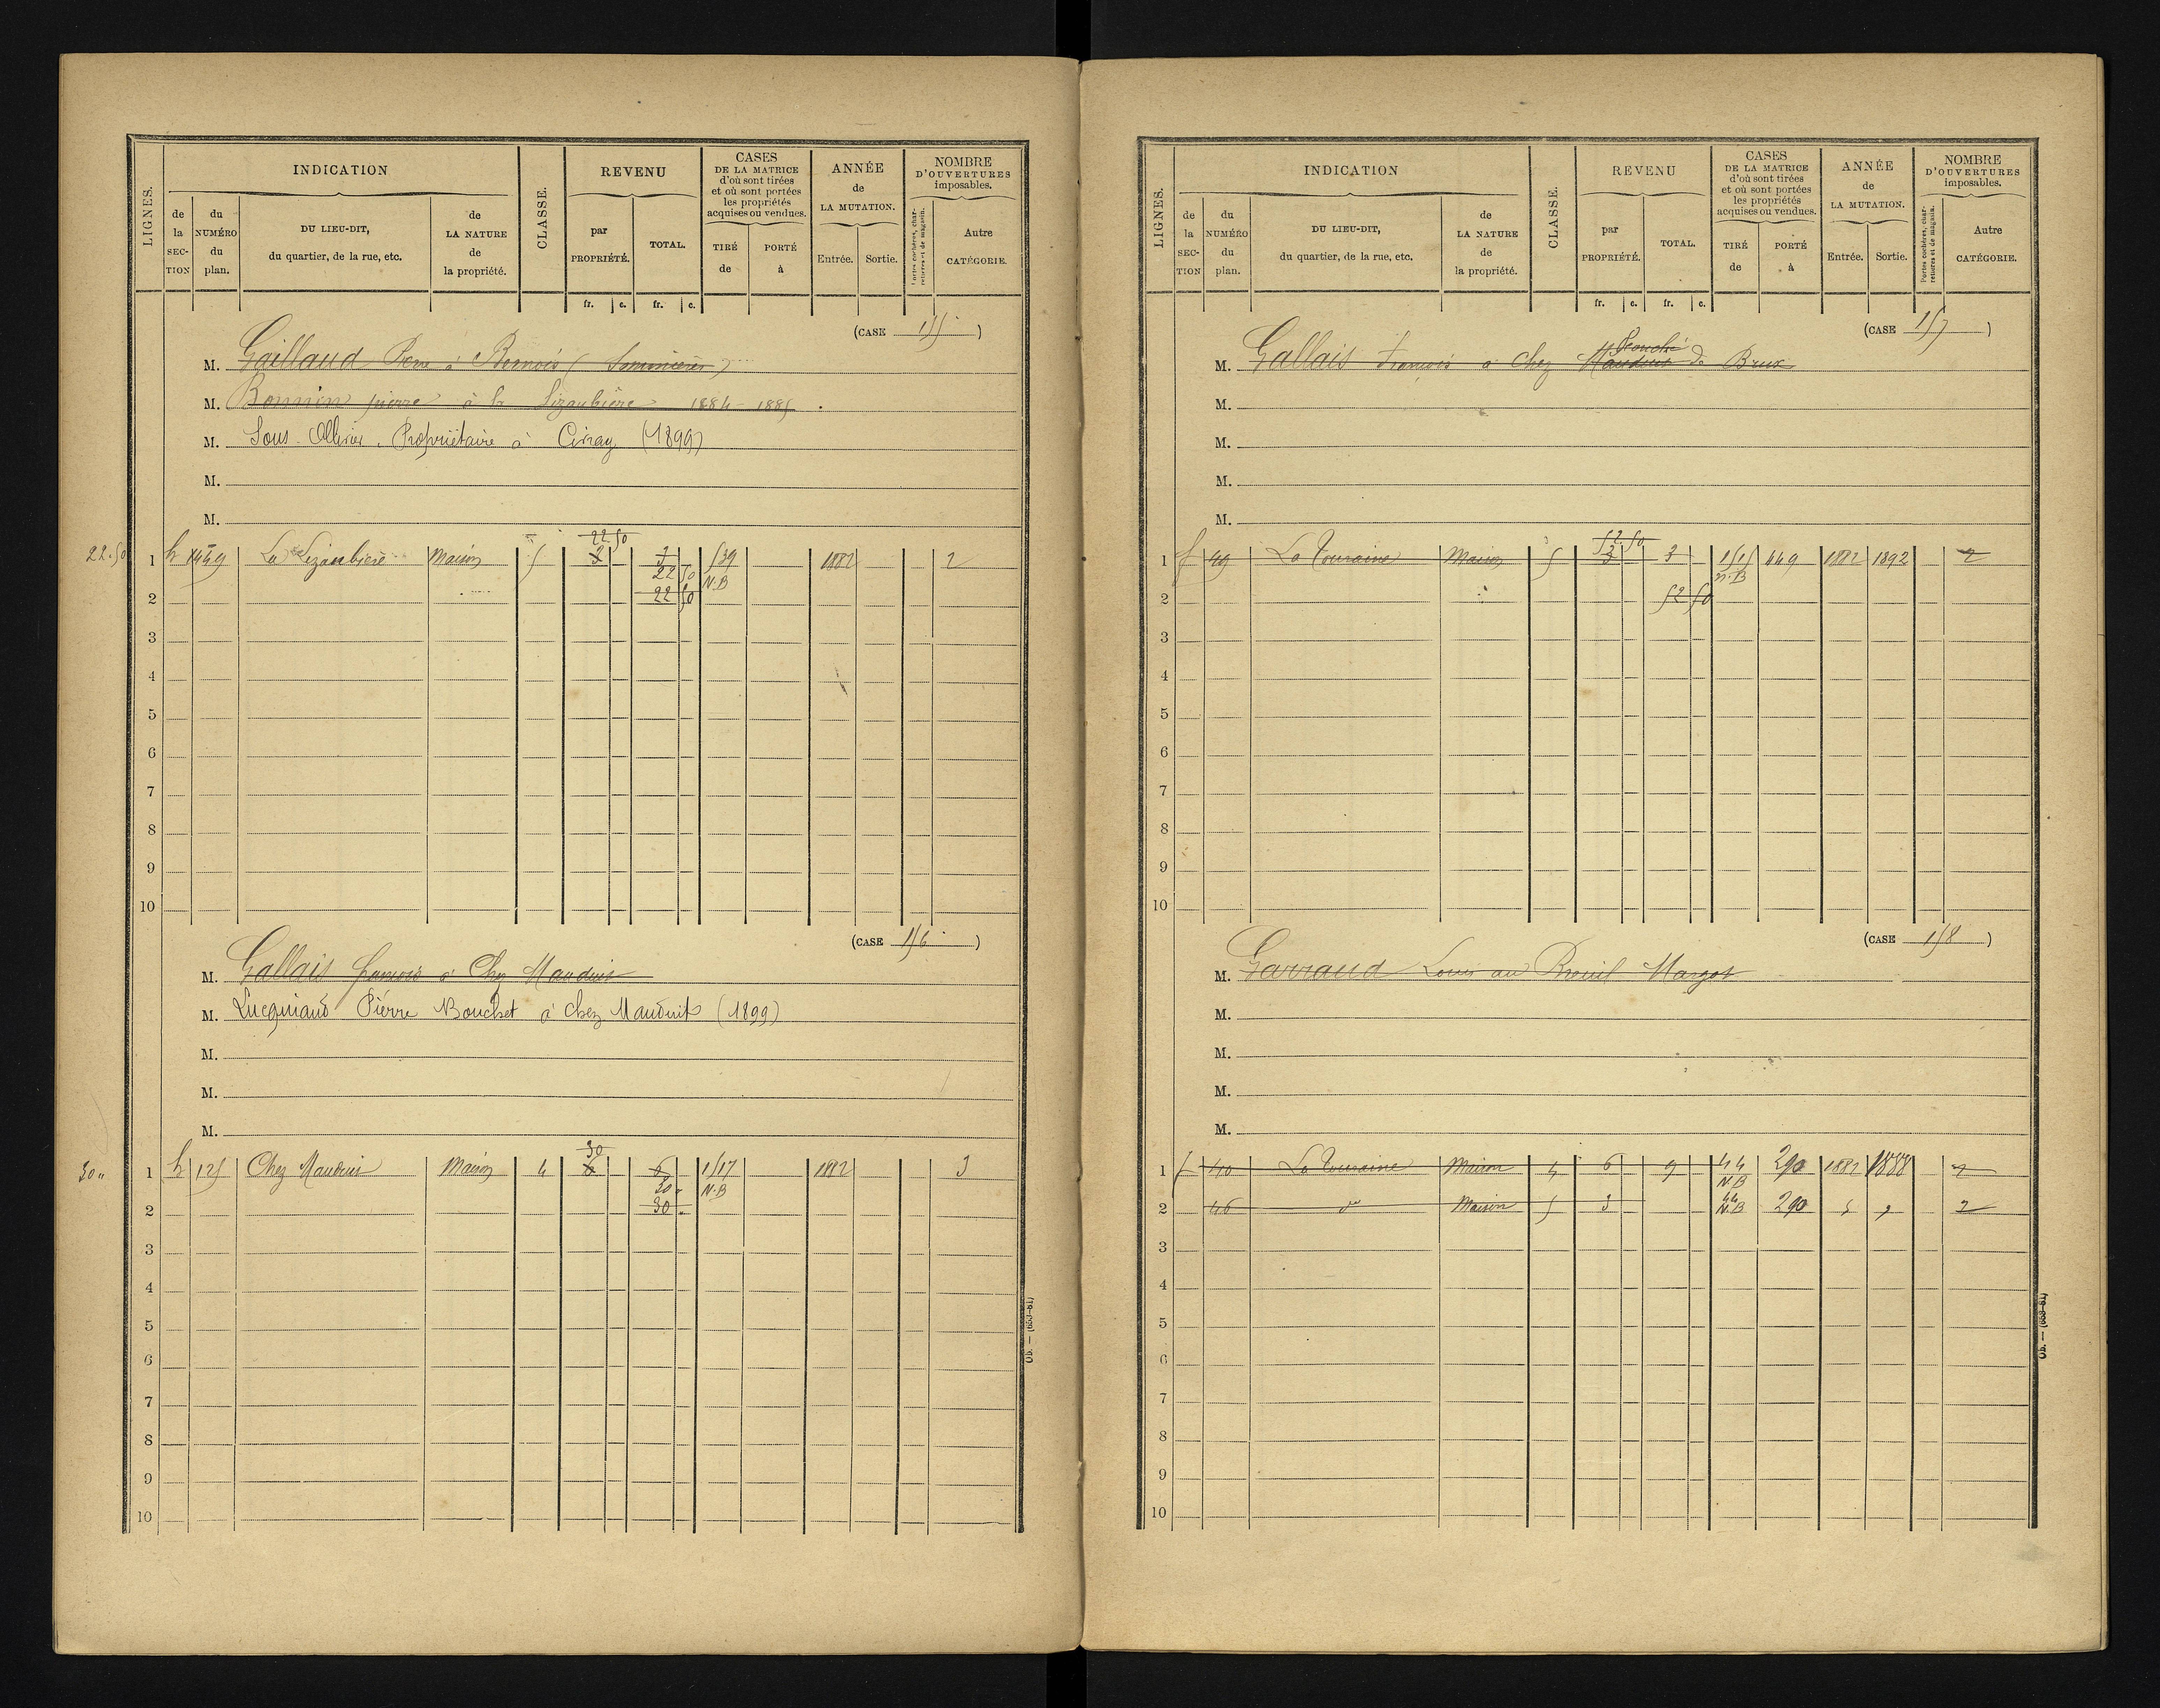 LIGNES.
INDICATION
de la SECTION
du NUMÉRO du plan.
DU LIEU-DIT, du quartier, de la rue, etc.
de LA NATURE de la propriété.
CLASSE.
REVENU
par PROPRIÉTÉ.
TOTAL.
CASES DE LA MATRICE d'où sont tirées et où sont portées les propriétés acquises ou vendues.
TIRÉ de
PORTÉ à
ANNÉE de LA MUTATION.
Entrée.
Sortie.
NOMBRE D'OUVERTURES imposables.
Portes cochères, charretières et de magasin.
Autre CATÉGORIE.
fr. c. fr. c.
(CASE 155)
M. Gaillaud Pierre à (Sommières)
M. Bonnin pierre à la Lizaubière 1884 - 1885
M. Propriétaire à Civray (1899)
M.
M.
22.50
22.50 1 h 1459 La Lizaubière Maison 5 3 3 539 1882 2
22 50 N.B
2 22 50
3
4
5
6
7
8
9
10
(CASE 156)
M. Gallais françois à Chez Mauduit
M. Lucquiaud Pierre Bouchet à chez Mauduits (1899)
M.
M.
M.
30
30 " 1 h 125 Chez Mauduit Maison 4 6 6 1517 1882 3
30 N.B
2 30
3
4
5
6
7
8
9
10
Ob. — (653-81)
LIGNES.
INDICATION
de la SECTION
du NUMÉRO du plan.
DU LIEU-DIT, du quartier, de la rue, etc.
de LA NATURE de la propriété.
CLASSE.
REVENU
par PROPRIÉTÉ.
TOTAL.
CASES DE LA MATRICE d'où sont tirées et où sont portées les propriétés acquises ou vendues.
TIRÉ de
PORTÉ à
ANNÉE de LA MUTATION.
Entrée.
Sortie.
NOMBRE D'OUVERTURES imposables.
Portes cochères, charretières et de magasin.
Autre CATÉGORIE.
fr. c. fr. c.
(CASE 157)
M. Gallais françois à chez Mauduit de Brux
M.
M.
M.
M.
52.50
1 f 49 La Touraine Maison 5 3 3 1515 449 1882 1892 2
N.B
2 52 50
3
4
5
6
7
8
9
10
(CASE 158)
M. Garraud Louis au Breuil Margot
M.
M.
M.
M.
1 f 40 La Touraine Maison 4 6 9 44 290 1882 1888 2
N.B
2 46 do Maison 5 3 44 290 2
N.B
3
4
5
6
7
8
9
10
Ob. — (653-81)